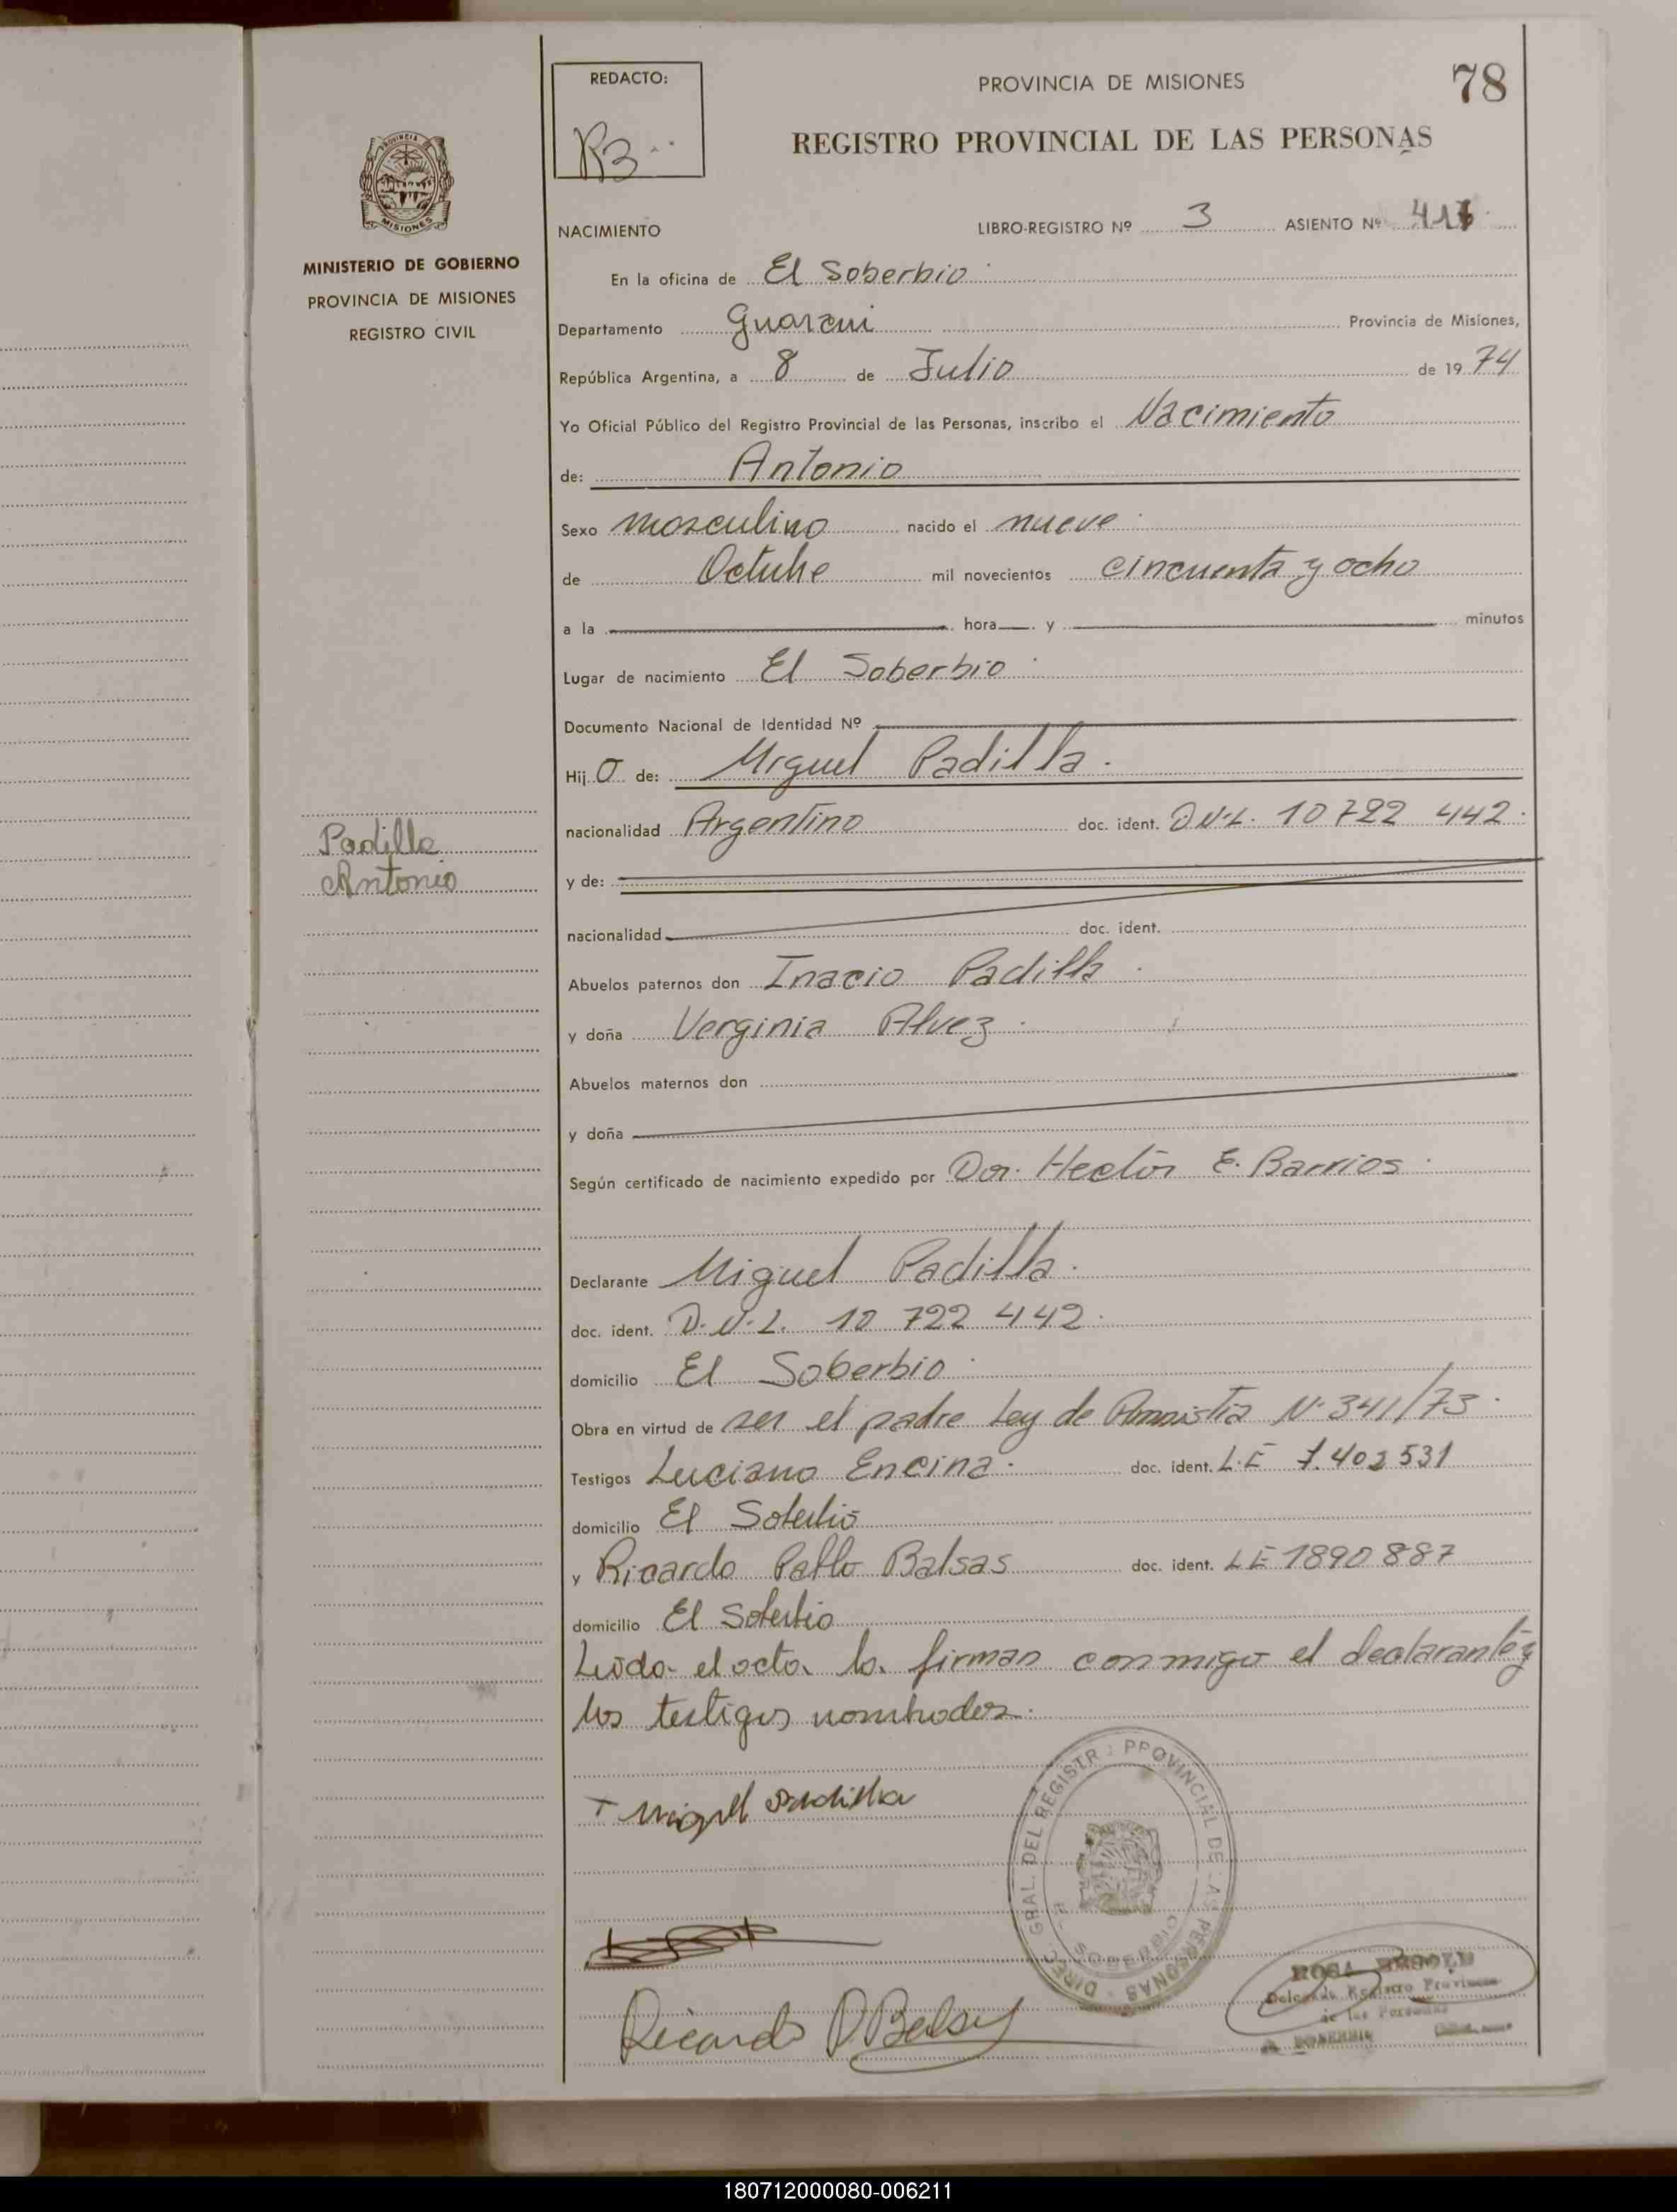 REDACTO:
R3
PROVINCIA DE MISIONES
78
REGISTRO PROVINCIAL DE LAS PERSONAS
MISIONES
MINISTERIO DE GOBIERNO
PROVINCIA DE MISIONES
REGISTRO CIVIL
NACIMIENTO LIBRO-REGISTRO Nº 3 ASIENTO Nº
En la oficina de El Soberbio
Departamento Guarani Provincia de Misiones,
República Argentina, a 8 de Julio de 19 74
Yo Oficial Público del Registro Provincial de las Personas, inscribo el Nacimiento
de: Antonio
Sexo masculino nacido el nueve
de Octubre mil novecientos cincuenta y ocho
a la hora y minutos
Lugar de nacimiento El Soberbio
Documento Nacional de Identidad Nº
Hij o de: Miguel Padilla.
nacionalidad Argentino doc. ident. D.N.I. 10 722 442.
Padilla
Antonio
y de:
nacionalidad doc. ident.
Abuelos paternos don Inacio Padilla
y doña Verginia Alvez
Abuelos maternos don
y doña
Según certificado de nacimiento expedido por Dor. Hector E. Barrios
Declarante Miguel Padilla.
doc. ident. D.N.I. 10 722 442.
domicilio El Soberbio
Obra en virtud de ser el padre Ley de Amnistia N. 341/73.
Testigos Luciano Encina. doc. ident. L.E 7.402 531
domicilio El Soberbio
y Ricardo Pablo Balsas doc. ident. LE 1890 887
domicilio El Soberbio
Leida el acta la firman conmigo el declarante y
los testigos nombrados.
Miguel Padilla
DIREC. GRAL. DEL REGISTRO PROVINCIAL DE LAS PERSONAS
EL SOBERBIO
Ricardo P. Balsas
ROSA
Delegada Registro Provincial
de las Personas
EL SOBERBIO
180712000080-006211